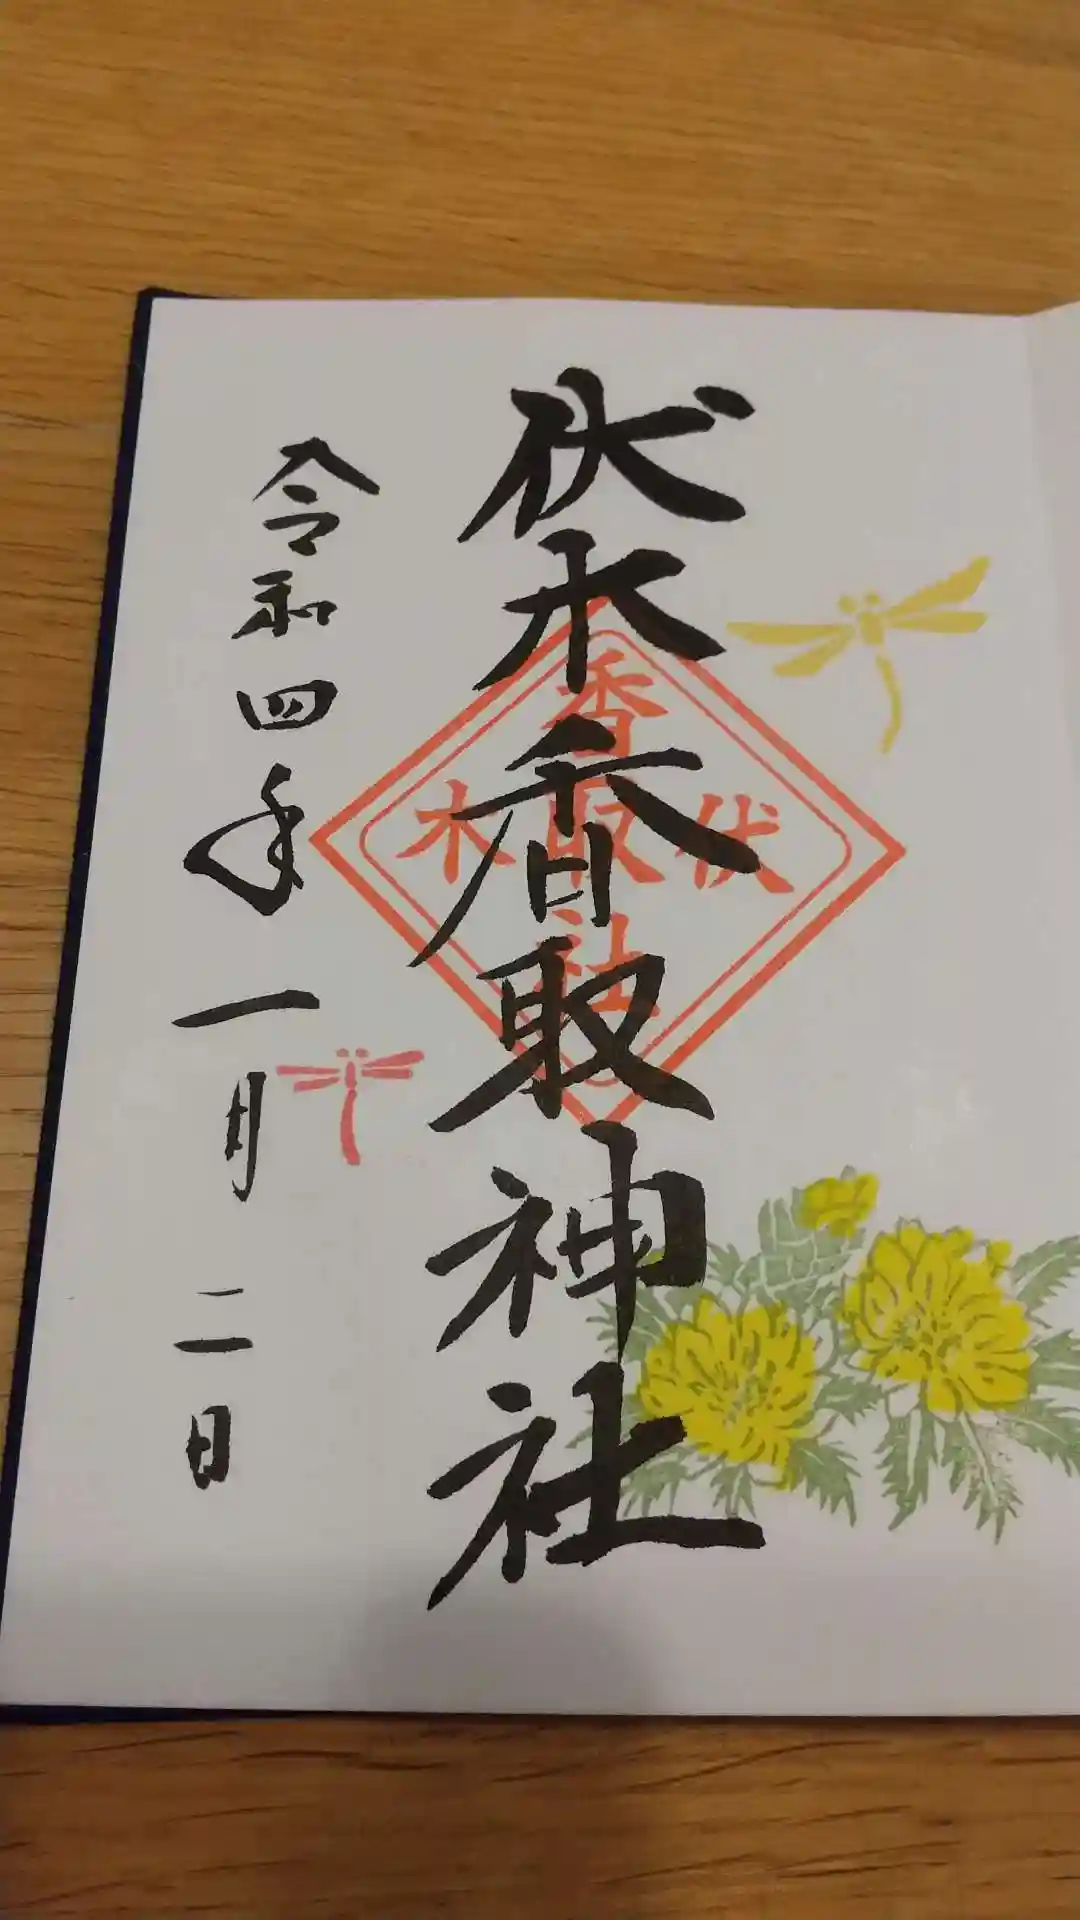 伏木香取神社
香取社
伏木
令和四年一月二日